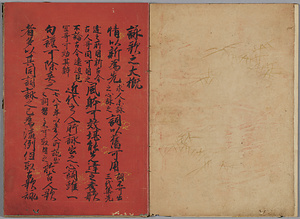 詠歌之大概
情以新為先 求人未詠之心詠之 詞以舊可用 詞不可出三代集先
達之所用新古今古人歌同可用之 風躰可效堪能先達之秀歌
不論古今遠近見宜歌可效其躰 近代之人所詠出之心詞雖一
句謹可除棄之 七八十年以来人之歌所詠出之詞 於古人歌
者多以其同詞詠之已為流例但取古歌詠